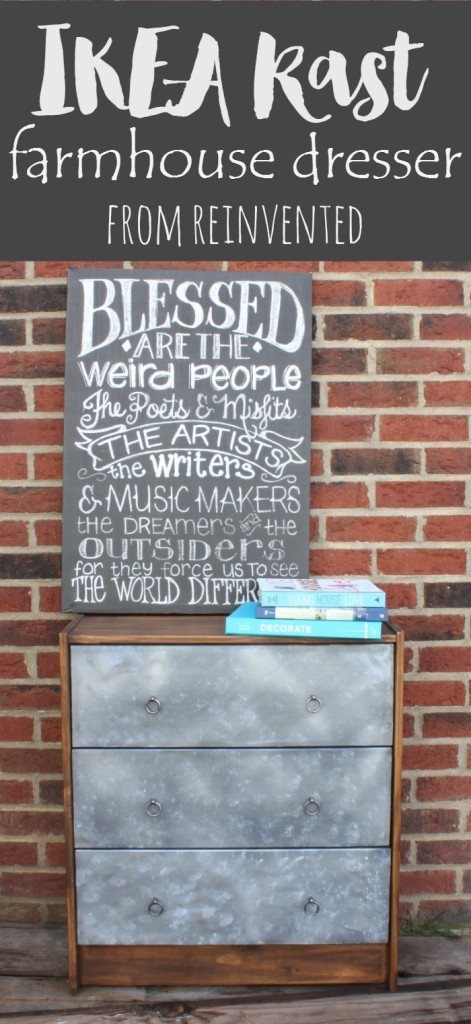 IKEA Rast
farmhouse dresser
FROM REINVENTED
BLESSED
ARE THE
weird people
The Poets & Misfits
THE ARTISTS
the writers
& MUSIC MAKERS
the DREAMERS and the
OUTSIDERS
for they force us to see
THE WORLD DIFFER
YOUNG HOUSE LOVE
DECORATE